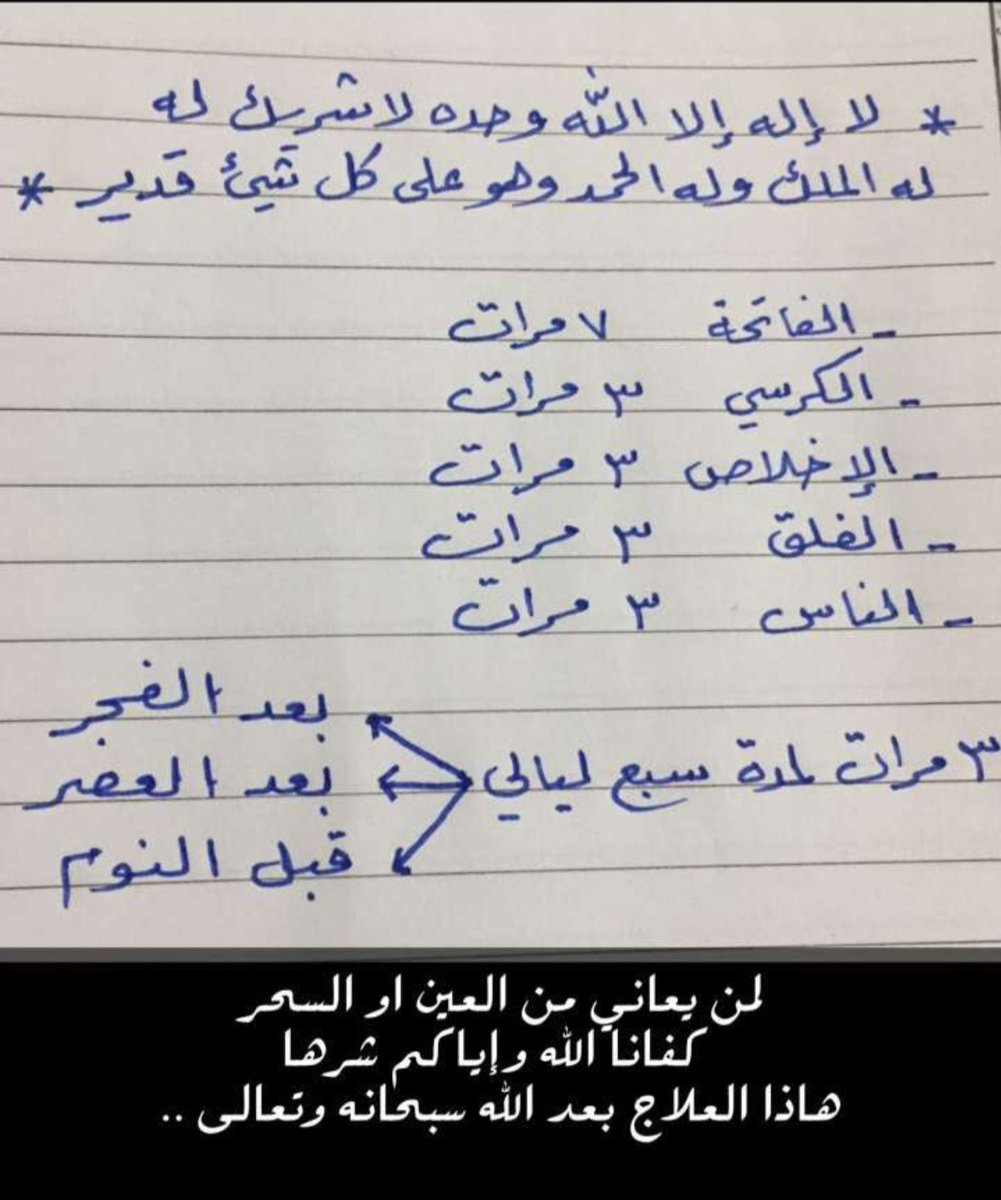 * لا إله إلا الله وحده لا شريك له
له الملك وله الحمد وهو على كل شيئ قدير *
- الفاتحة ٧ مرات
- الكرسي ٣ مرات
- الإخلاص ٣ مرات
- الفلق ٣ مرات
- الناس ٣ مرات
بعد الفجر
٣ مرات لمدة سبع ليالي بعد العصر
قبل النوم
لمن يعاني من العين او السحر
كفانا الله وإياكم شرها
هاذا العلاج بعد الله سبحانه وتعالى ..